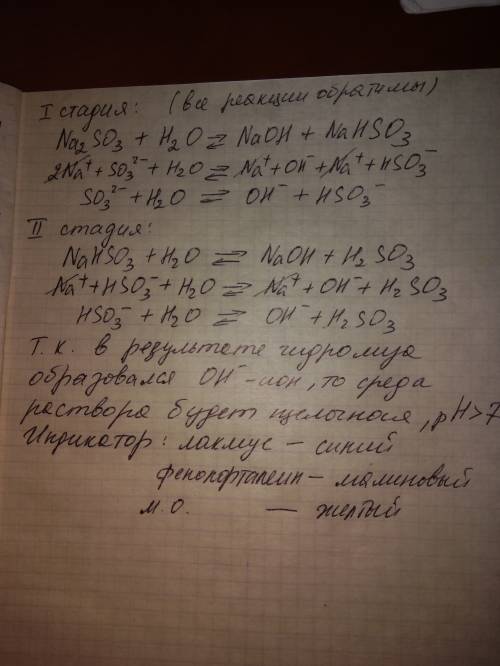 I стадия: (все реакции обратимы)
Na₂SO₃ + H₂O ⇌ NaOH + NaHSO₃
2Na⁺ + SO₃²⁻ + H₂O ⇌ Na⁺ + OH⁻ + Na⁺ + HSO₃⁻
SO₃²⁻ + H₂O ⇌ OH⁻ + HSO₃⁻
II стадия:
NaHSO₃ + H₂O ⇌ NaOH + H₂SO₃
Na⁺ + HSO₃⁻ + H₂O ⇌ Na⁺ + OH⁻ + H₂SO₃
HSO₃⁻ + H₂O ⇌ OH⁻ + H₂SO₃
Т.к. в результате гидролиза
образовался OH⁻-ион, то среда
раствора будет щелочная, pH>7
Индикатор: лакмус – синий
фенолфталеин – малиновый
м.о. — желтый